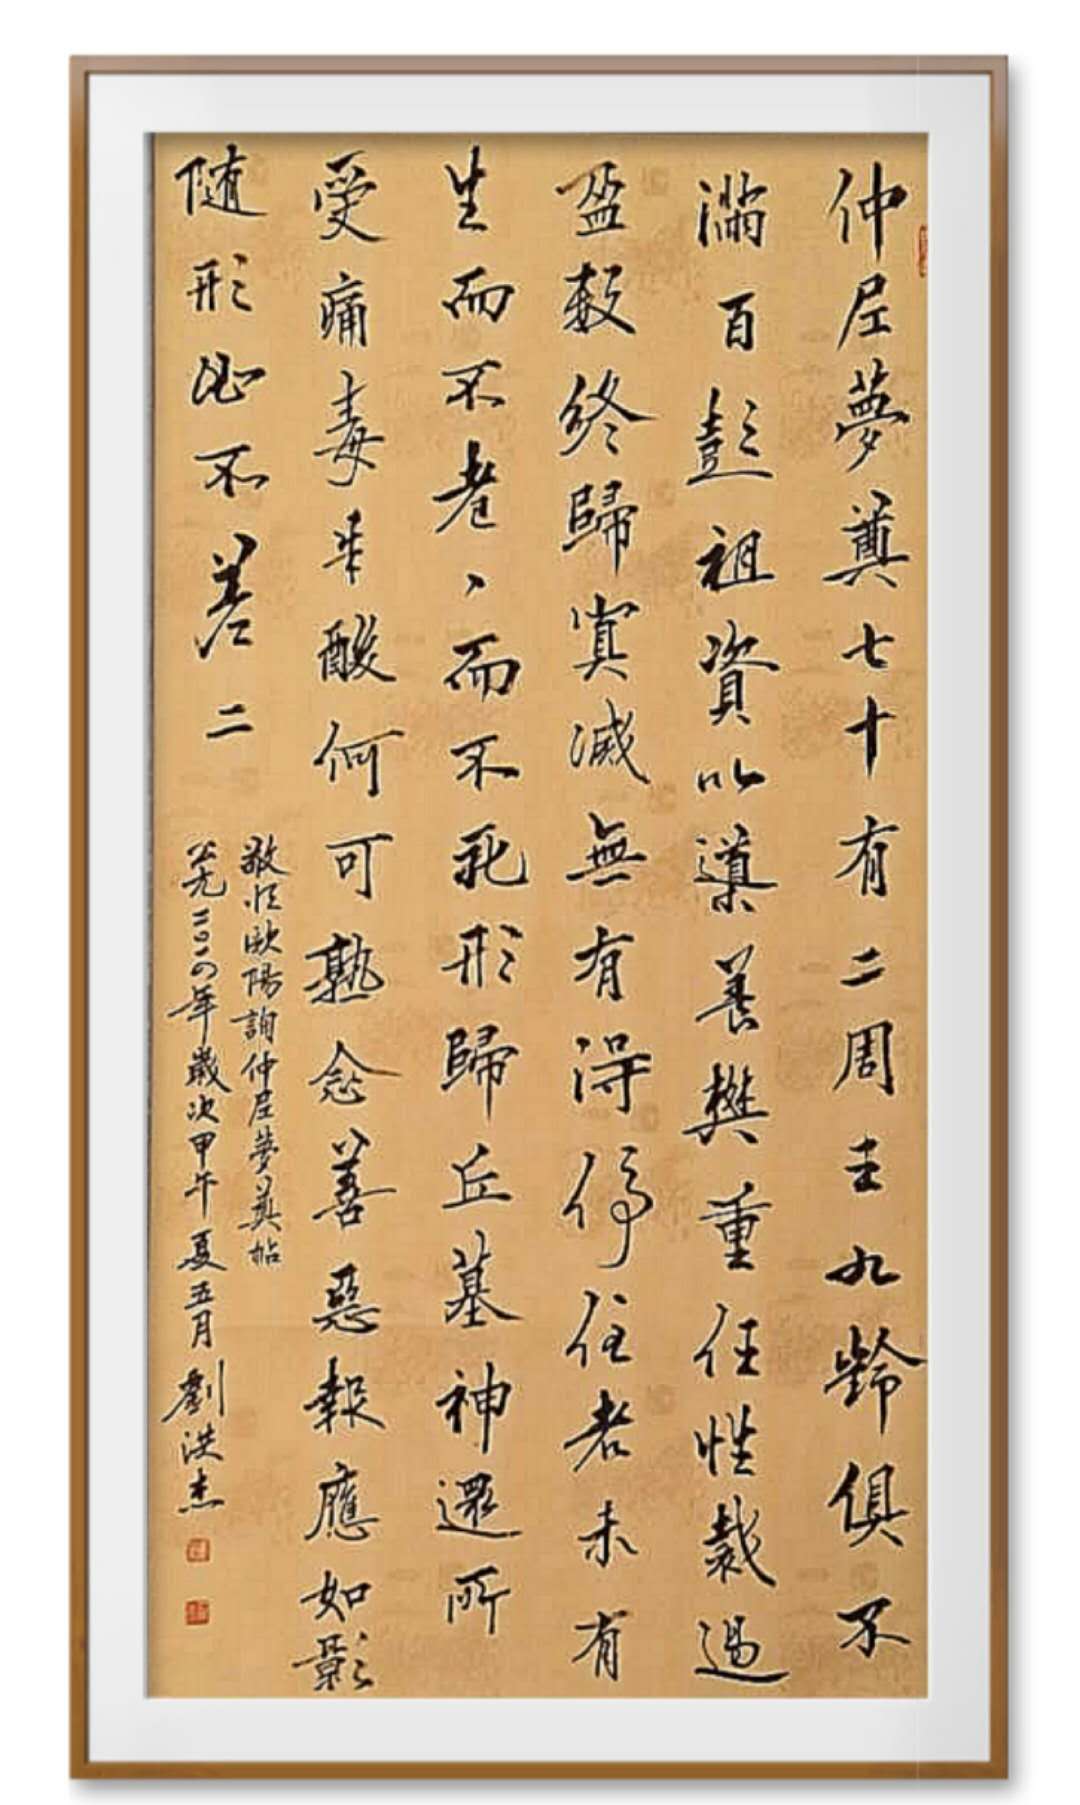 仲尼夢奠七十有二周王九齡俱不
滿百彭祖資以導養樊重任性裁過
盈數終歸冥滅無有得停住者未有
生而不老〻而不死形歸丘墓神還所
受痛毒辛酸何可熟念善惡報應如影
隨形必不差二
敬臨歐陽詢仲尼夢奠帖
公元二〇一四年歲次甲午夏五月劉洪杰